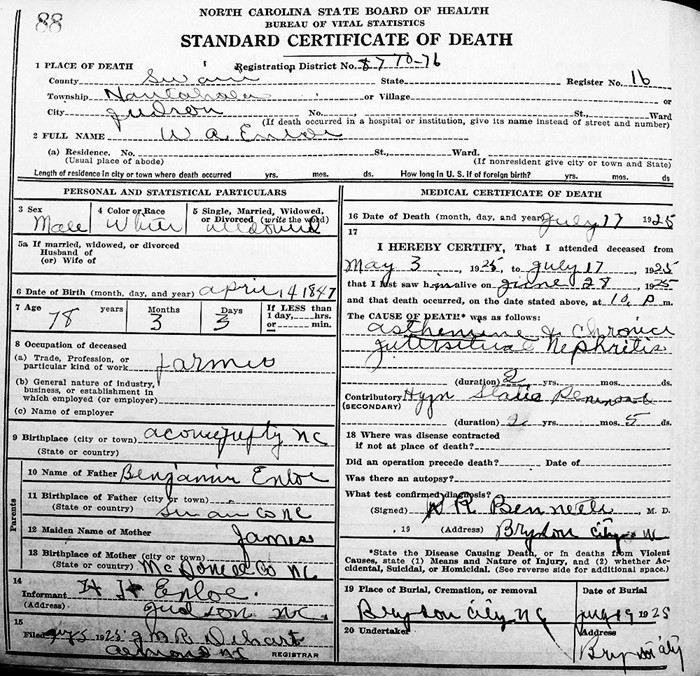 88
NORTH CAROLINA STATE BOARD OF HEALTH
BUREAU OF VITAL STATISTICS
STANDARD CERTIFICATE OF DEATH
1 PLACE OF DEATH Registration District No. 8770-76
County Swain State Register No. 16
Township Nantahala or Village or
City Judson No. St., Ward
(If death occurred in a hospital or institution, give its name instead of street and number)
2 FULL NAME W A Enloe
(a) Residence. No. St., Ward.
(Usual place of abode) (If nonresident give city or town and State)
Length of residence in city or town where death occurred yrs. mos. ds. How long in U. S. if of foreign birth? yrs. mos. ds.
PERSONAL AND STATISTICAL PARTICULARS
3 Sex 4 Color or Race 5 Single, Married, Widowed, or Divorced (write the word)
Male White widowed
5a If married, widowed, or divorced
Husband of
(or) Wife of
6 Date of Birth (month, day, and year) april 14 1847
7 Age years Months Days If LESS than
1 day, hrs.
or min.
78 3 3
8 Occupation of deceased
(a) Trade, Profession, or
particular kind of work farmer
(b) General nature of industry,
business, or establishment in
which employed (or employer)
(c) Name of employer
9 Birthplace (city or town) NC
(State or country)
Parents
10 Name of Father Benjamin Enloe
11 Birthplace of Father (city or town)
(State or country) Swain Co NC
12 Maiden Name of Mother James
13 Birthplace of Mother (city or town)
(State or country) McDonell Co NC
14
Informant Enloe.
(Address) Judson NC.
15
Filed 1925 Dehart
almond NC REGISTRAR
MEDICAL CERTIFICATE OF DEATH
16 Date of Death (month, day, and year) July 17 1925
17
I HEREBY CERTIFY, That I attended deceased from
May 3, 1925, to July 17, 1925
that I last saw him alive on June 28, 1925
and that death occurred, on the date stated above, at 10, P m.
The CAUSE OF DEATH* was as follows:
Chronic
Nephritis
(duration) 2 yrs. mos. ds.
Contributory
(SECONDARY)
(duration) yrs. mos. 5 ds.
18 Where was disease contracted
if not at place of death?
Did an operation precede death? Date of
Was there an autopsy?
What test confirmed diagnosis?
(Signed) R. Bennett M. D.
, 19 (Address) Bryson City NC
*State the Disease Causing Death, or in deaths from Violent
Causes, state (1) Means and Nature of Injury, and (2) whether Ac-
cidental, Suicidal, or Homicidal. (See reverse side for additional space.)
19 Place of Burial, Cremation, or removal Date of Burial
Bryson City NC July 19 1925
20 Undertaker Address
Bryson City